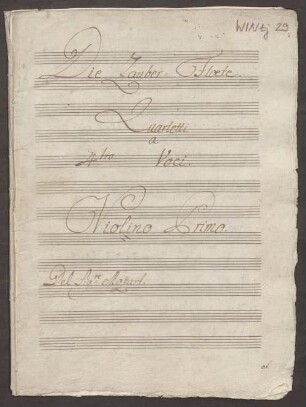 WINtj 29
Die Zauber Floete
Quartetti
a
4tro Voci.
Violino Primo.
Del Sigre Mozart.